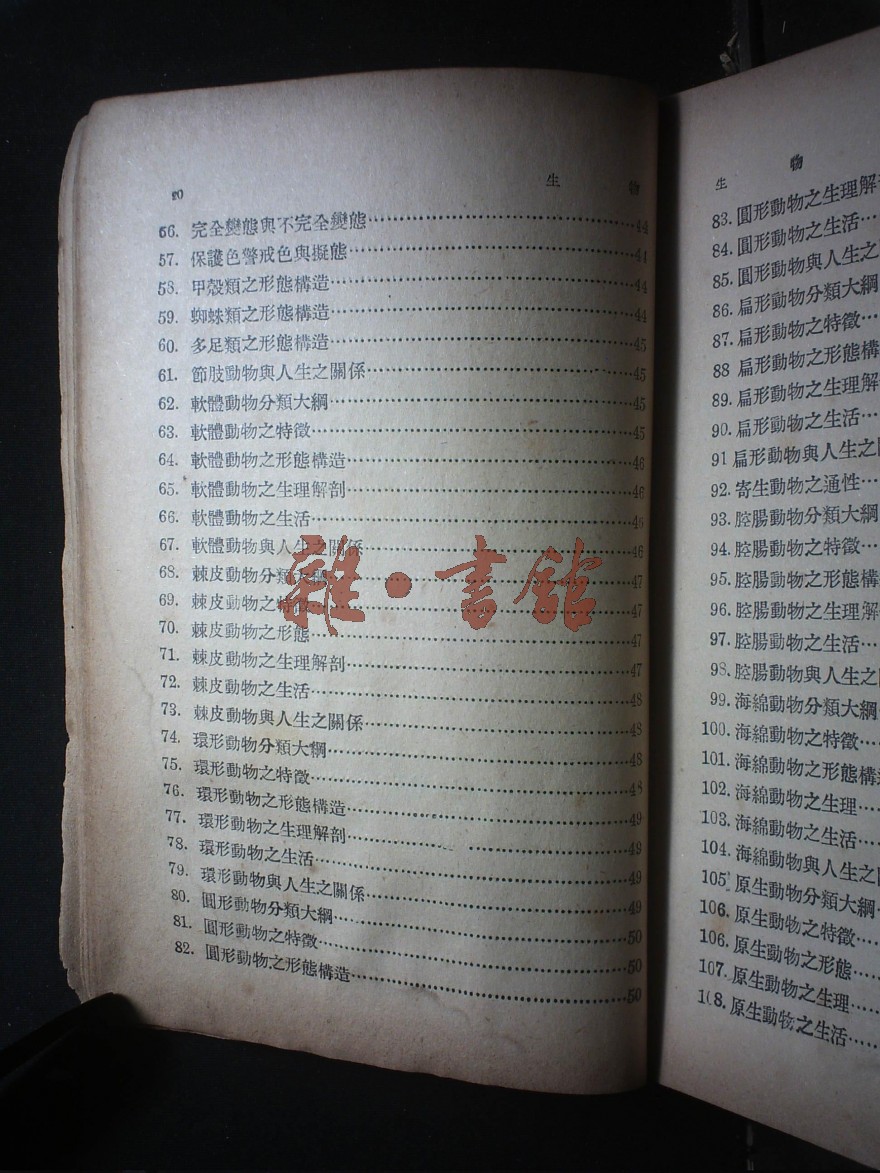 20
生 物
56. 完全變態與不完全變態……44
57. 保護色警戒色與擬態……44
58. 甲殼類之形態構造……44
59. 蜘蛛類之形態構造……44
60. 多足類之形態構造……45
61. 節肢動物與人生之關係……45
62. 軟體動物分類大綱……45
63. 軟體動物之特徵……45
64. 軟體動物之形態構造……46
65. 軟體動物之生理解剖……46
66. 軟體動物之生活……46
67. 軟體動物與人生之關係……46
68. 棘皮動物分類大綱……47
69. 棘皮動物之特徵……47
70. 棘皮動物之形態……47
71. 棘皮動物之生理解剖……47
72. 棘皮動物之生活……48
73. 棘皮動物與人生之關係……48
74. 環形動物分類大綱……48
75. 環形動物之特徵……48
76. 環形動物之形態構造……49
77. 環形動物之生理解剖……49
78. 環形動物之生活……49
79. 環形動物與人生之關係……49
80. 圓形動物分類大綱……50
81. 圓形動物之特徵……50
82. 圓形動物之形態構造……50
雜·書館
生 物
83. 圓形動物之生理解剖
84. 圓形動物之生活…
85. 圓形動物與人生之
86. 扁形動物分類大綱
87. 扁形動物之特徵…
88 扁形動物之形態構
89. 扁形動物之生理解
90. 扁形動物之生活…
91 扁形動物與人生之
92. 寄生動物之通性…
93. 腔腸動物分類大綱
94. 腔腸動物之特徵…
95. 腔腸動物之形態構
96. 腔腸動物之生理解
97. 腔腸動物之生活…
98. 腔腸動物與人生之
99. 海綿動物分類大綱
100. 海綿動物之特徵…
101. 海綿動物之形態構
102. 海綿動物之生理…
103. 海綿動物之生活…
104. 海綿動物與人生之
105 原生動物分類大綱
106. 原生動物之特徵…
106. 原生動物之形態…
107. 原生動物之生理…
108. 原生動物之生活……